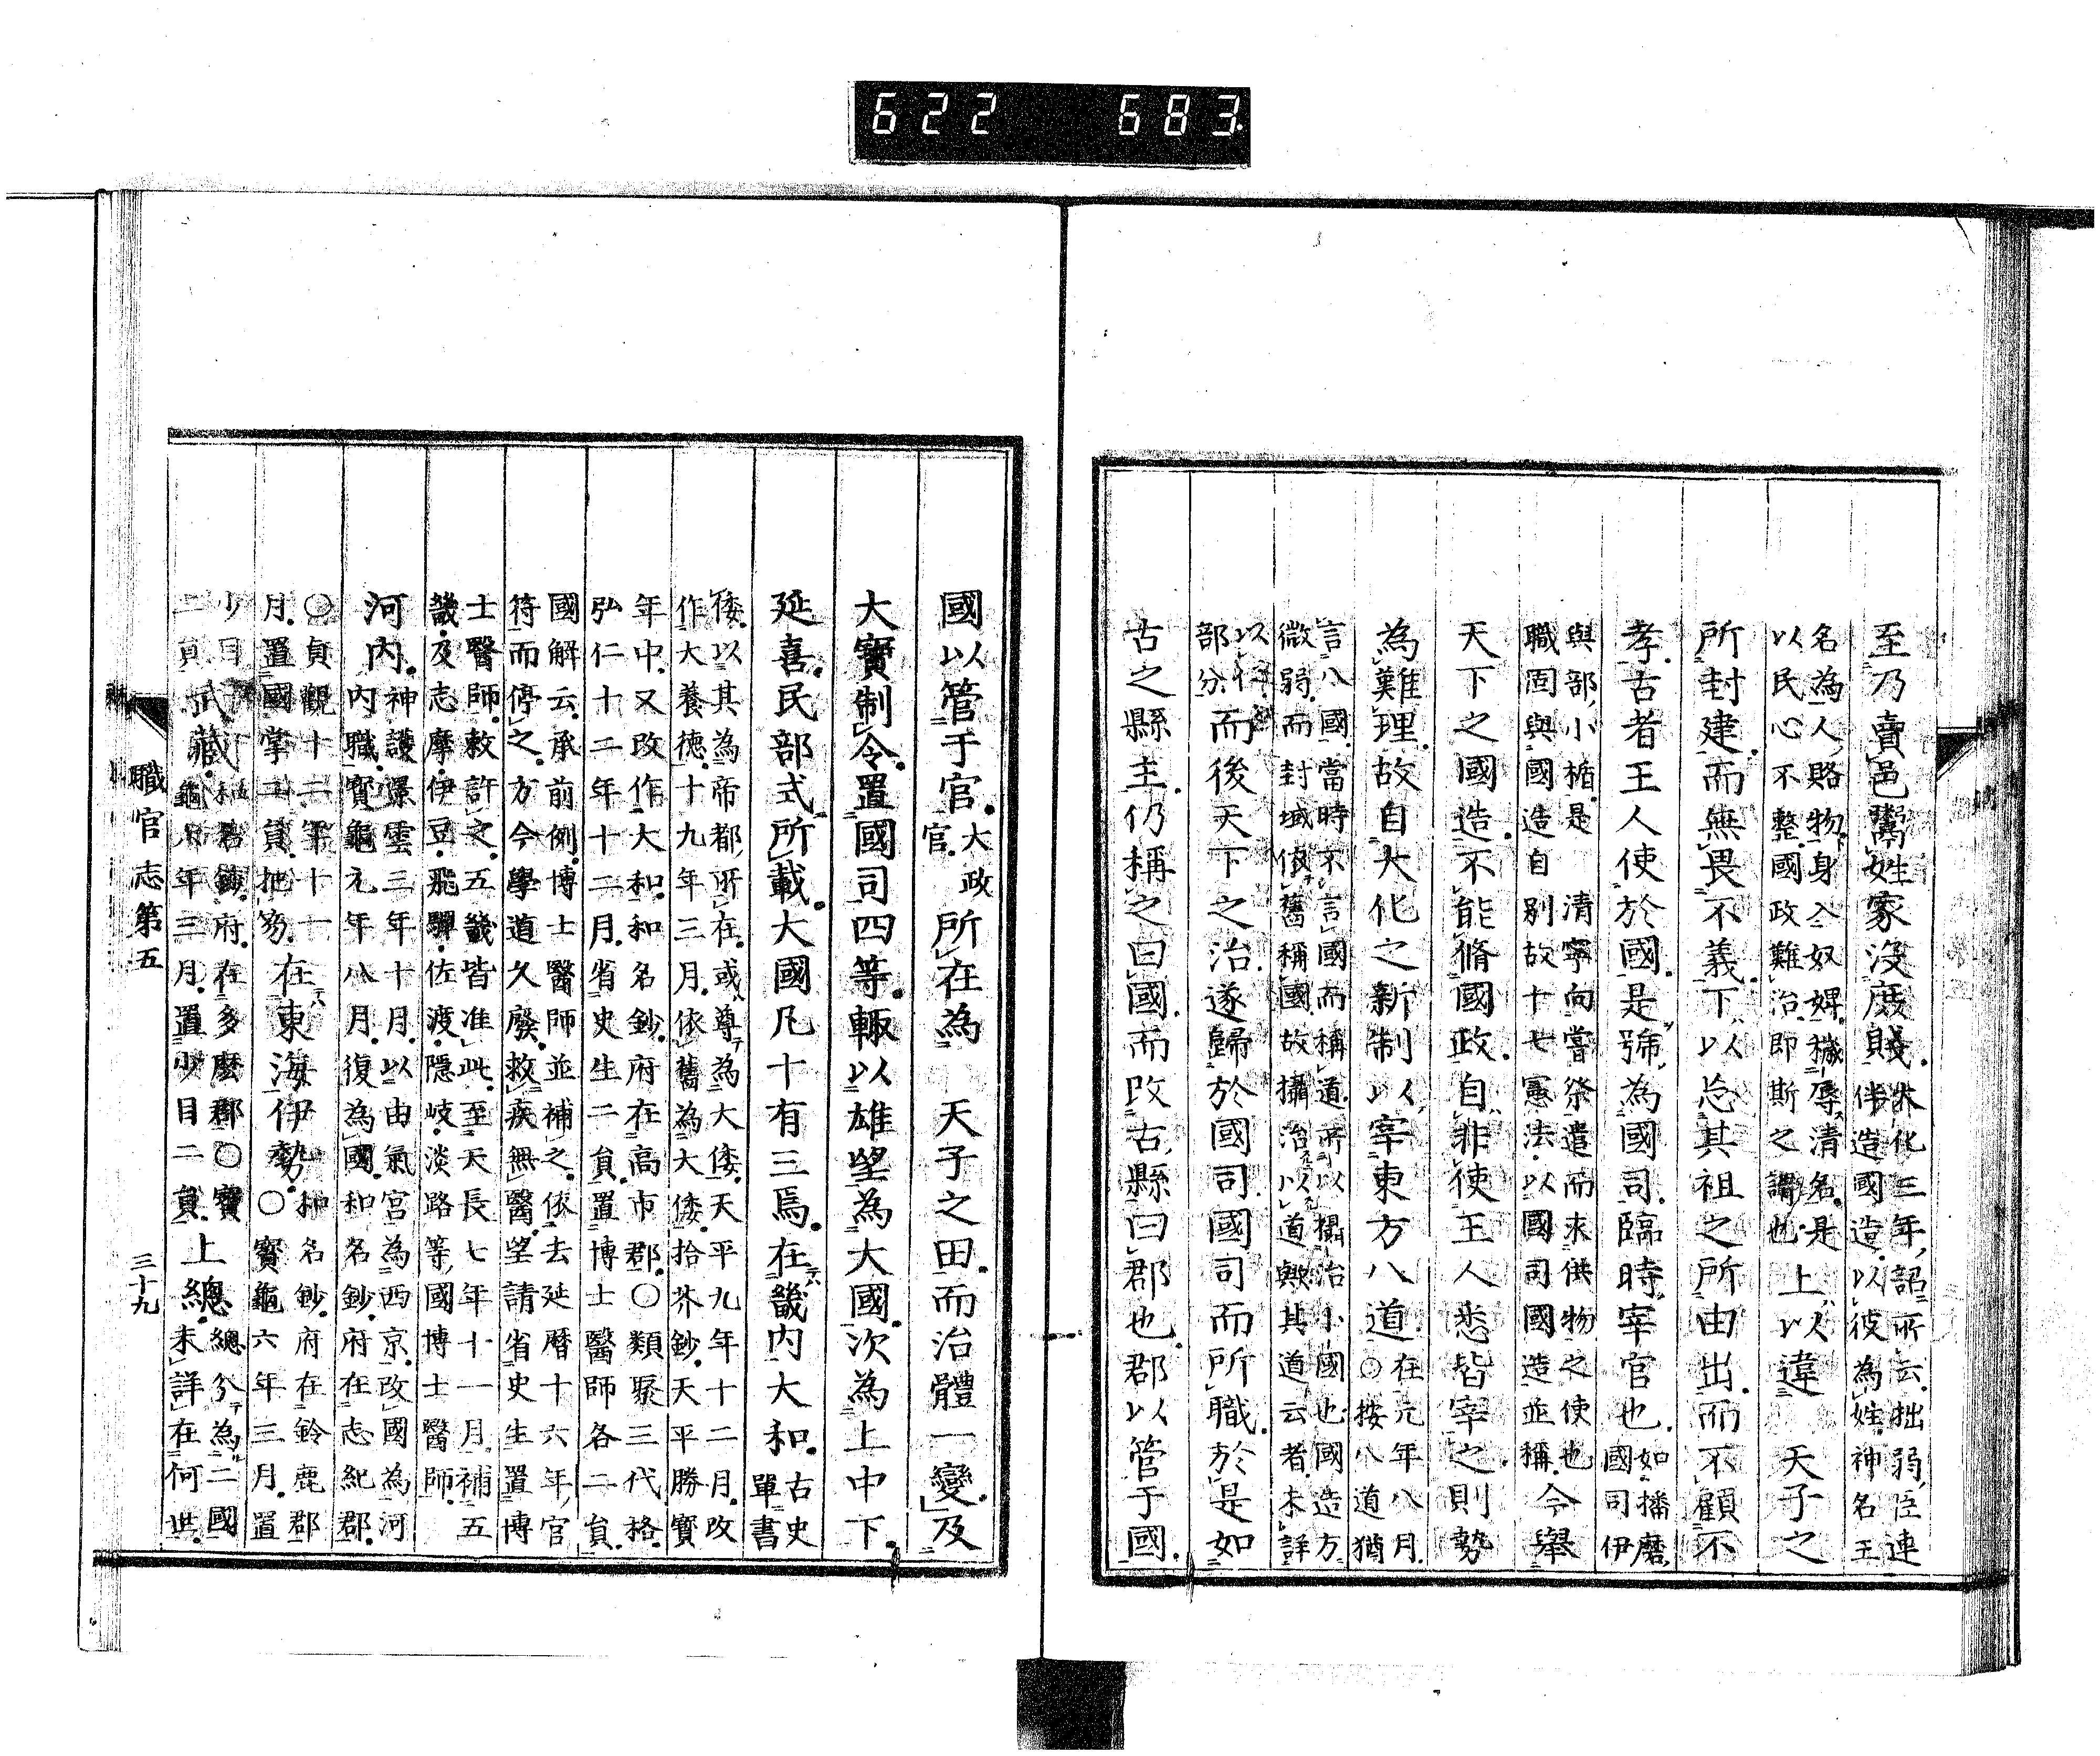 622 683
至乃賣邑鬻姓家沒廢賤大化三年詔所云拙弱臣連
伴造國造以彼為姓神名王
名為人賂物身入奴婢穢辱清名是
以民心不整國政難治即斯之謂也上以違 天子之
所封建而無畏不義下以忘其祖之所由出而不顧不
孝古者王人使於國是號為國司臨時宰官也如播磨
國司伊
與部小楯是 清寧向嘗祭遣而求供物之使也
職固與國造自別故十七憲法以國司國造並稱今舉
天下之國造不能脩國政自非使王人悉皆宰之則勢
為難理故自大化之新制以宰東方八道在元年八月
○按八道猶
言八國當時不言國而稱道所以攝治小國也國造方
微弱而封域依舊稱國故攝治以道歟其道云者未詳
部分而後天下之治遂歸於國司國司而所職於是如
古之縣主仍稱之曰國而改古縣曰郡也郡以管于國
國以管于官大政
官所在為 天子之田而治體一變及
大寶制令置國司四等輙以雄望為大國次為上中下
延喜民部式所載大國凡十有三焉在畿內大和古史
單書
倭以其為帝都所在或尊為大倭天平九年十二月改
作大養德十九年三月依舊為大倭拾芥鈔天平勝寶
年中又改作大和和名鈔府在高市郡○類聚三代格
弘仁十二年十二月省史生二員置博士醫師各二員
國解云承前例博士醫師並補之依去延曆十六年官
符而停之方今學道久廢救疾無醫望請省史生置博
士醫師敕許之五畿皆准此至天長七年十一月補五
畿及志摩伊豆飛驒佐渡隱岐淡路等國博士醫師
河內神護景雲三年十月以由氣宮為西京改國為河
內職寶龜元年八月復為國和名鈔府在志紀郡
○貞觀十二年十一
月置國掌二員把笏在東海伊勢和名鈔府在鈴鹿郡
○寶龜六年三月置
少目
二員武藏和名鈔府在多麼郡○寶
龜八年三月置少目二員上總總分為二國
未詳在何世
職官志第五
三十九